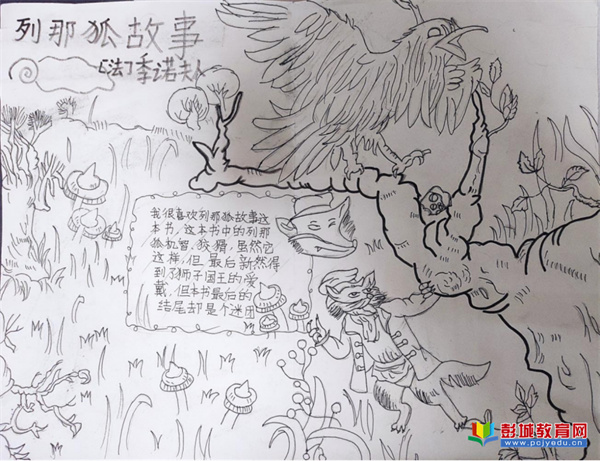 列那狐故事
[法]季诺夫人
我很喜欢列那狐故事这
本书，这本书中的列那
狐机智，狡猾，虽然它
这样，但最后新然得
到了狮子国王的爱
戴，但本书最后的
结尾却是个迷团
彭城教育网
www.pcjyedu.cn